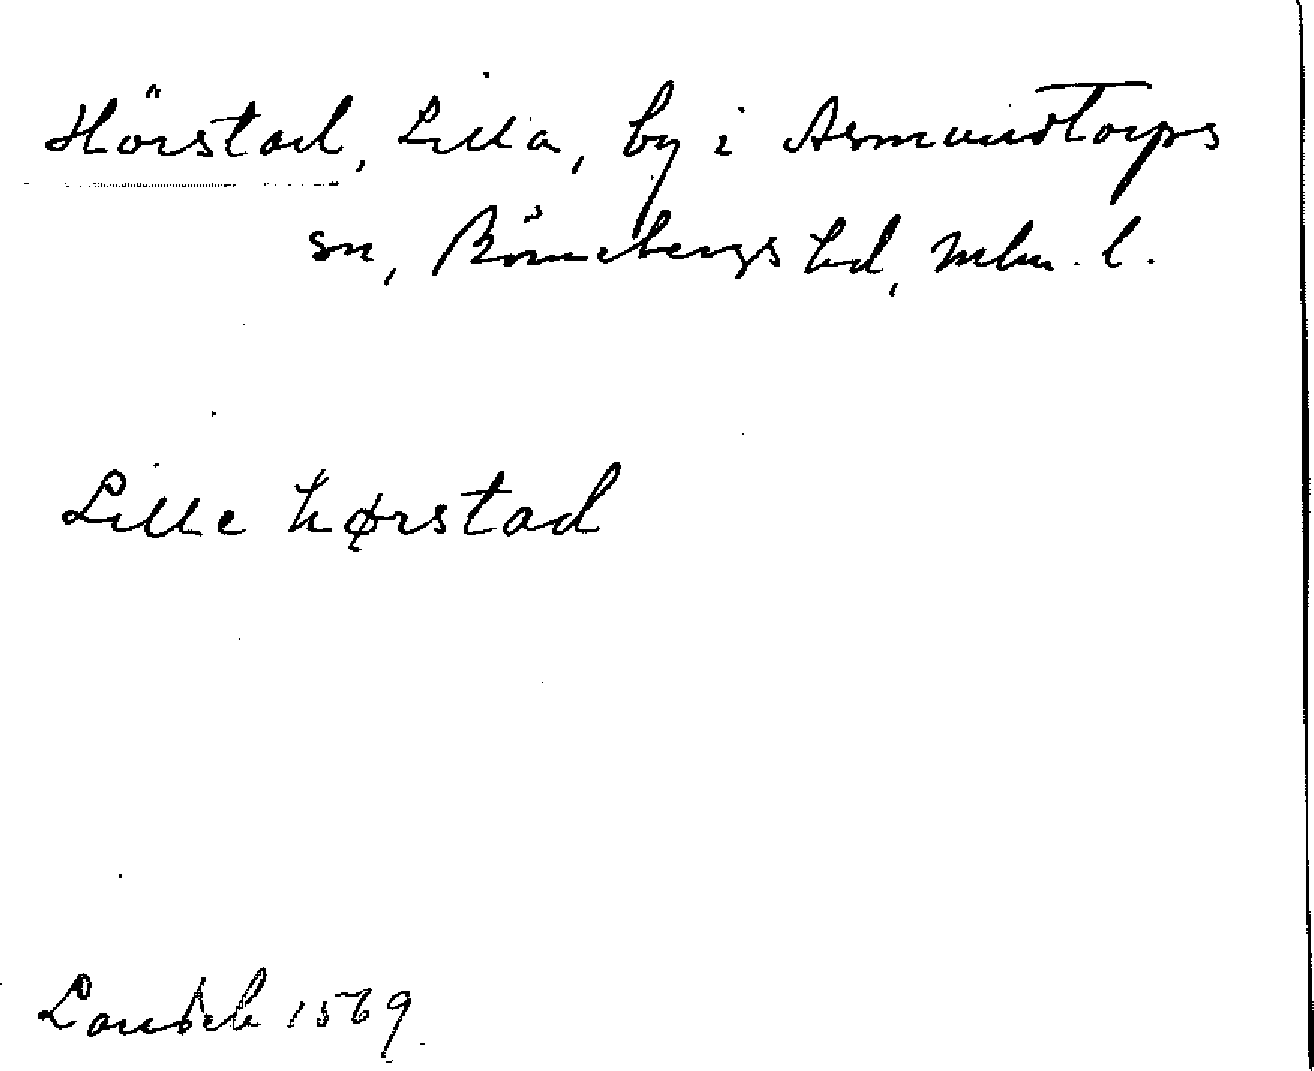 Hörstad, Lilla, by i Asmundtorps
sn, Rönnebergs hd, Mlm. l.
Lille hørstad
Landeb 1569